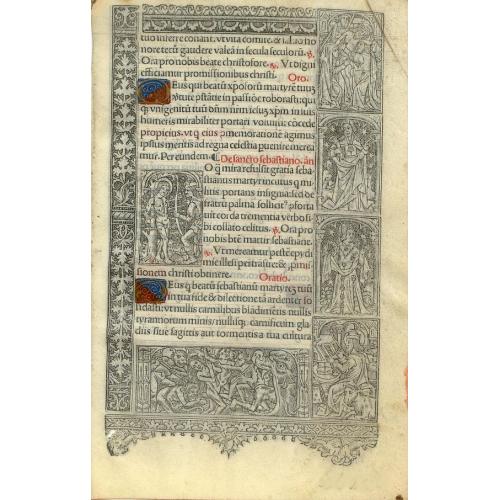 tuo inferre conant. vt vita comite. & i
nore tecū gaudere valeā in secula seculorū. ꝟ.
Ora pro nobis beate christofore. ꝶ. Vt digni
efficiamur promissionibus christi. Oro.
Deus qui beatū xp̄oforū martyrē tuū
virtute ꝯstātie in passiōe roborasti: qui
qꝫ vnigenitū tuū dn̄m nr̄m iesuz xp̄m in suis
humeris mirabiliter portari voluisti: cōcede
propicius. vt q̄ eius ꝯmemorationē agimus
ipsius meritis ad regna celestia puenire merea
mur. Per eundem. De sancto sebastiano. añ
O q̄ mira refulsit gratia seba
stianus martyr inclitus q̄ mi
litis portans insignia: sed de
fratrū palma sollicitꝰ ꝯforta
uit corda trementia verbo si
bi collato celitus. ꝟ. Ora pro
nobis btē martir sebastiane.
ꝶ. Vt mereamur pestē epydi
mie illesi ptrāsire: & ꝓmis
sionem christi obtinere. Oratio.
Deus q̄ beatū sebastianū martyrē tuū
in tua fide & dilectione tā ardenter so
lidasti: vt nullis carnalibus blādimētis nullis
tyrannorum minis: nullisqꝫ carnificum gla
diis siue sagittis aut tormentis a tua cultura